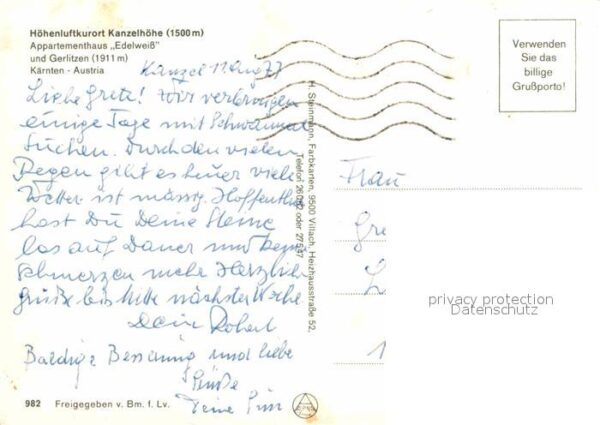 Höhenluftkurort Kanzelhöhe (1500 m)
Appartementhaus „Edelweiß"
und Gerlitzen (1911 m)
Kärnten - Austria
Kanzel 11. Aug 77
Liebe Grete! Wir verbringen
einige Tage mit Schwammal
suchen. Durch den vielen
Regen gibt es heuer viele
Wetter ist mässig. Hoffentlich
hast Du Deine Steine
los auf Dauer und keine
Schmerzen mehr Herzliche
Grüße bis Mitte nächster Woche
Dein Robert
Baldige Besserung und liebe
Grüße
Deine
982 Freigegeben v. Bm. f. Lv.
H. Steinmann, Farbkarten, 9500 Villach, Heizhausstraße 52,
Telefon
Verwenden
Sie das
billige
Grußporto!
Frau
Gre
L
1
privacy protection
Datenschutz